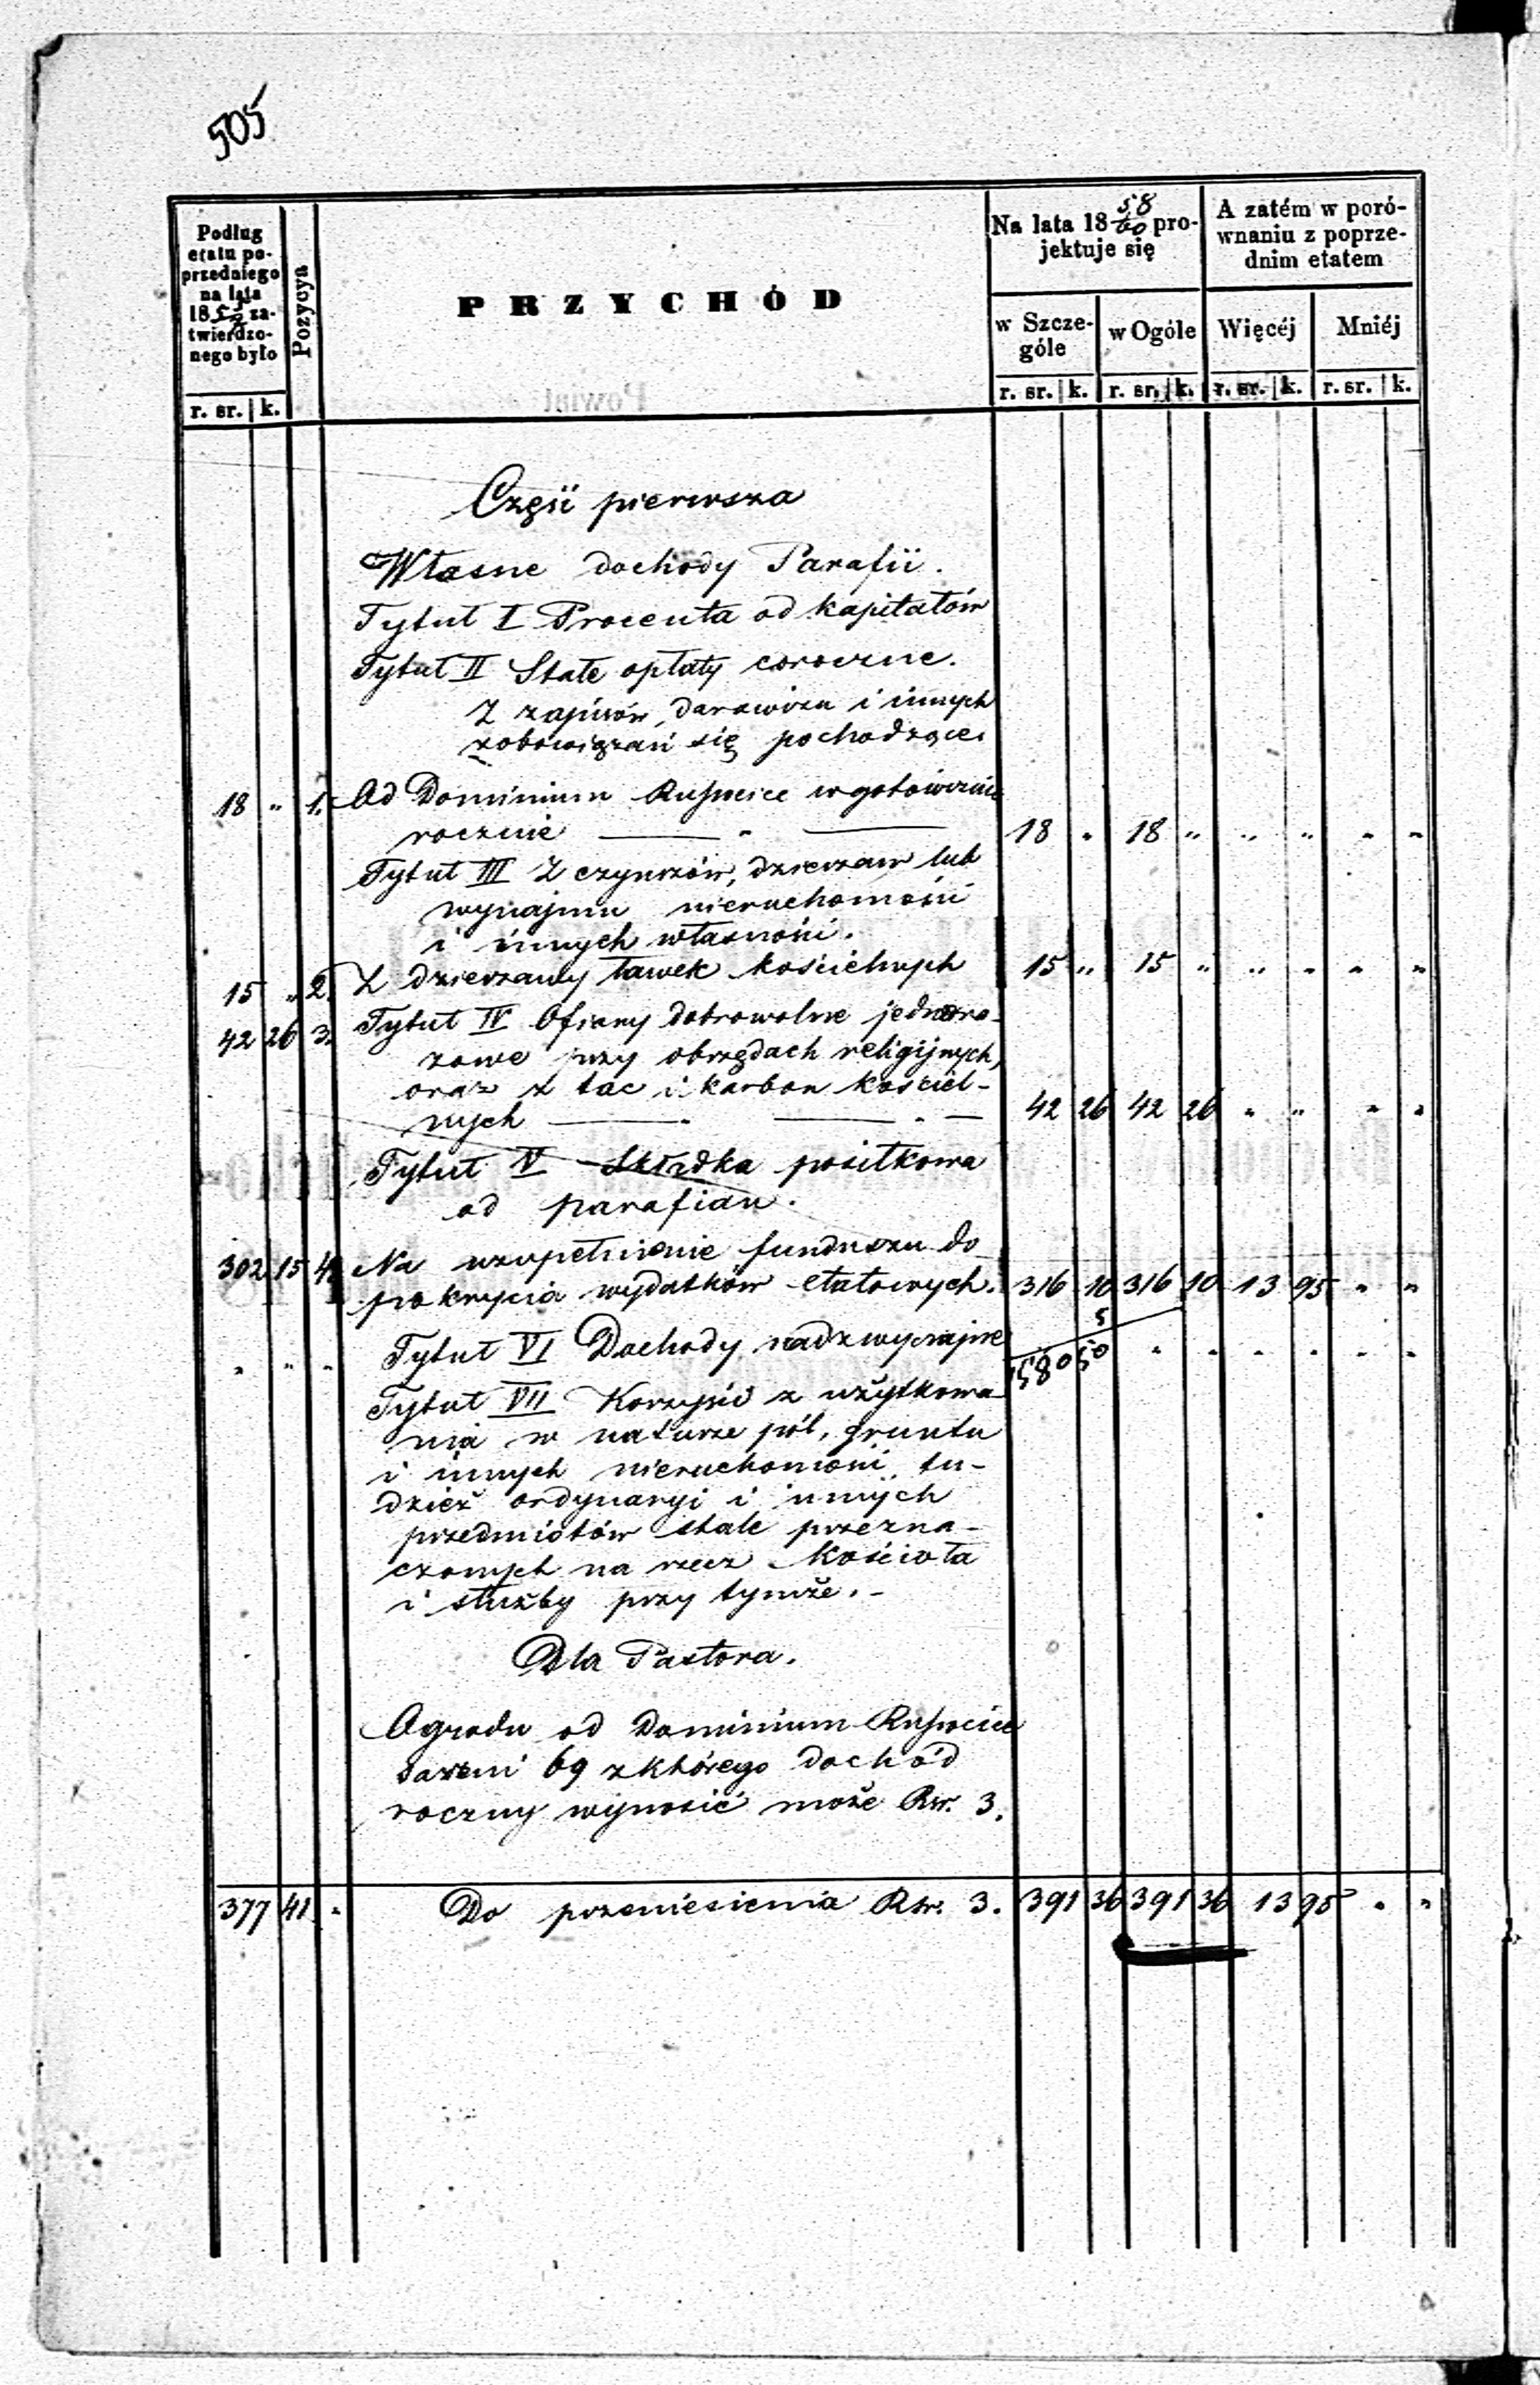 505
Podług
etatu po-
przedniego
na lata
18 za-
twierdzo-
nego było
Pozycya
PRZYCHÓD
Na lata 18 58/60 pro-
jektuje się
A zatém w poró-
wnaniu z poprze-
dnim etatem
w Szcze-
góle
w Ogóle
Więcéj
Mniéj
r. sr. k.
r. sr. k. r. sr. k. r. sr. k. r. sr. k.
Część pierwsza
Własne dochody Parafii.
Tytuł I Procenta od kapitałów
Tytuł II Stałe opłaty coroczne.
Z zapisów, darowizn i innych
zobowiązań się pochodzące.
18 " 1. Od Dominium w gotowiźnie
rocznie — " — 18 " 18 " " " " "
Tytuł III Z czynszów, dzierżaw lub
wynajmu nieruchomości
i innych własności.
15 " 2. Z dzierżawy ławek kościelnych 15 " 15 " " " " "
42 26 3. Tytuł IV Ofiary dobrowolne jednora-
zowe przy obrzędach religijnych,
oraz z tac i karbon kościel-
nych — " — " — 42 26 42 26 " " " "
Tytuł V Składka posiłkowa
od parafian.
302 15 4. Na uzupełnienie funduszu do
pokrycia wydatków etatowych. 316 10 316 10 13 95 " "
" " " Tytuł VI Dochody nadzwyczajne " " " " " "
5
158 050
Tytuł VII Korzyści z użytkowa-
nia w naturze pól, gruntu
i innych nieruchomości tu-
dzież ordynaryi i innych
przedmiotów stale przezna-
czonych na rzecz Kościoła
i służby przy tymże. -
Dla Pastora.
Ogrodu od Dominium
sążni 69 z którego dochód
roczny wynosić może Rsr. 3.
377 41 " Do przeniesienia Rsr. 3. 391 36 391 36 13 95 " "